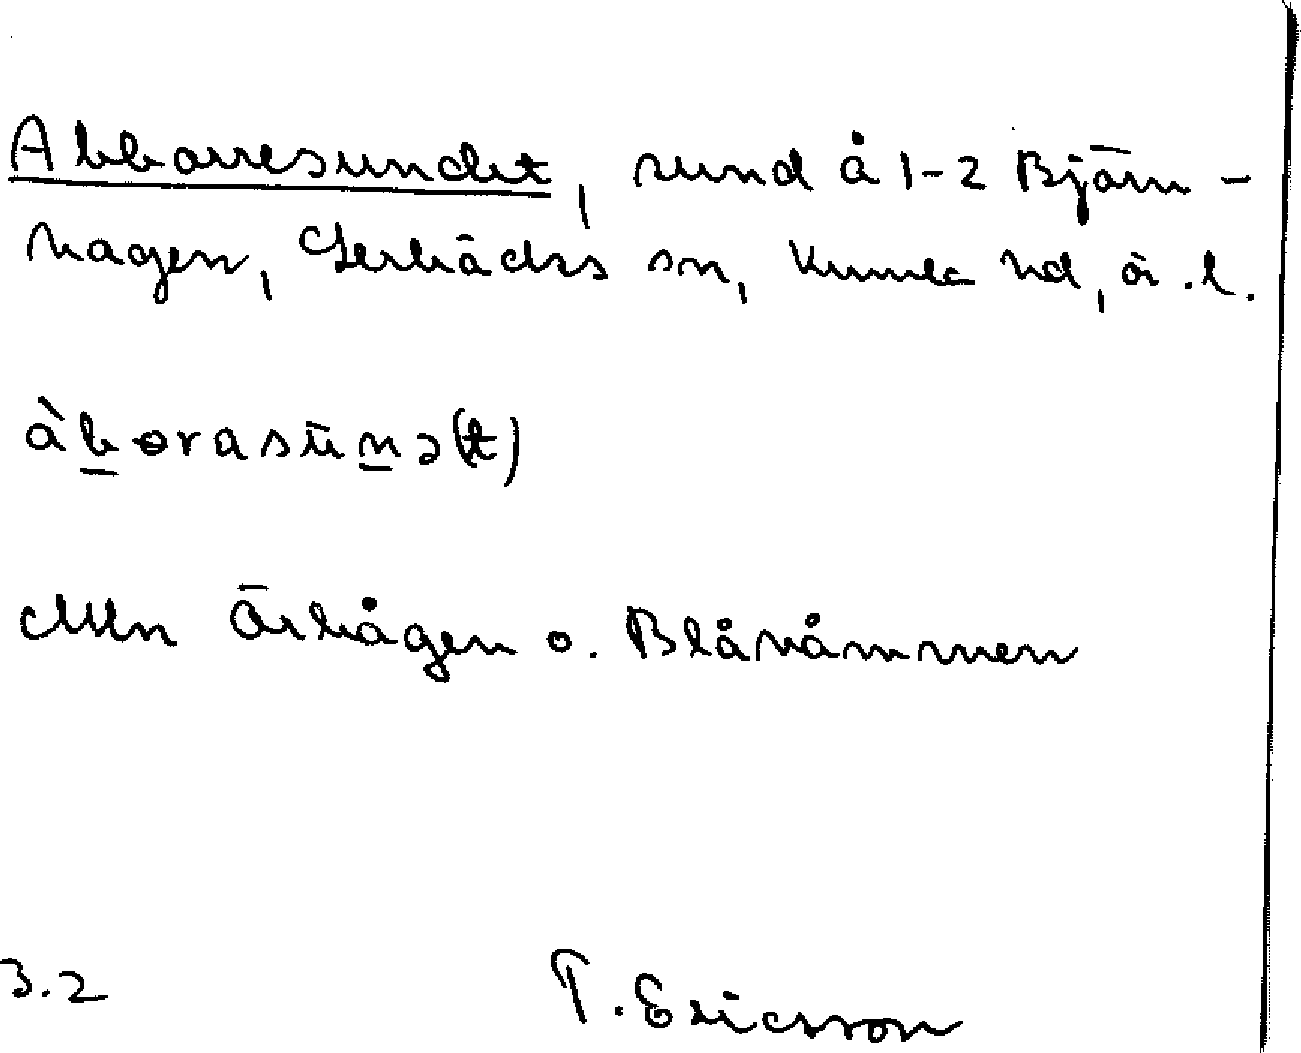 Abborresundet, sund å 1-2 Björn-
hagen, Lerbäcks sn, Kumla hd, ör.l.
àborasūnə(t)
Mln Örhågen o. Blåhåmmen
3.2
T. Ericsson